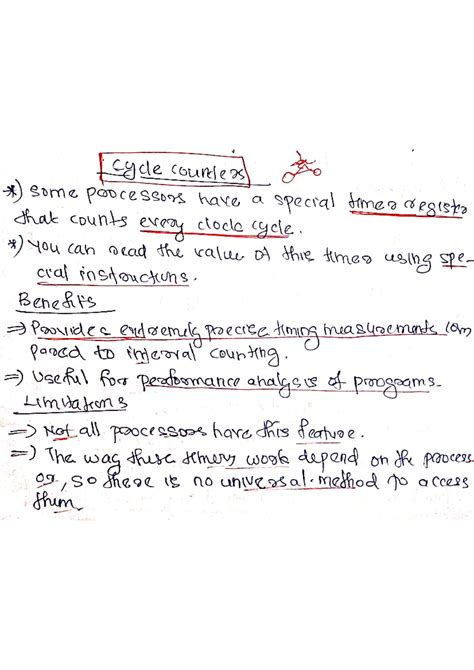 Cycle counters
*) Some processors have a special timer register
that counts every clock cycle.
*) You can read the value of this timer using spe-
cial instructions.
Benefits
⇒ Provides extremely precise timing measurements com
pared to interval counting.
⇒ Useful for performance analysis of programs.
Limitations
⇒ Not all processors have this feature.
⇒ The way these timers work depend on the process
or, so there is no universal method to access
them